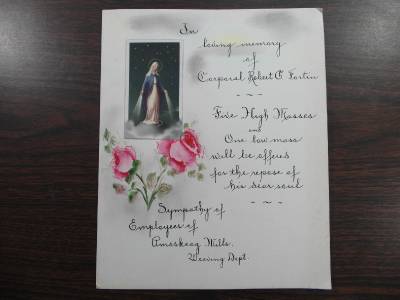 In
loving memory
of
Corporal Robert O. Fortin
Five High Masses
and
One low mass
will be offered
for the repose of
his dear soul
Sympathy of
Employees of
Amoskeag Mills.
Weaving Dept.